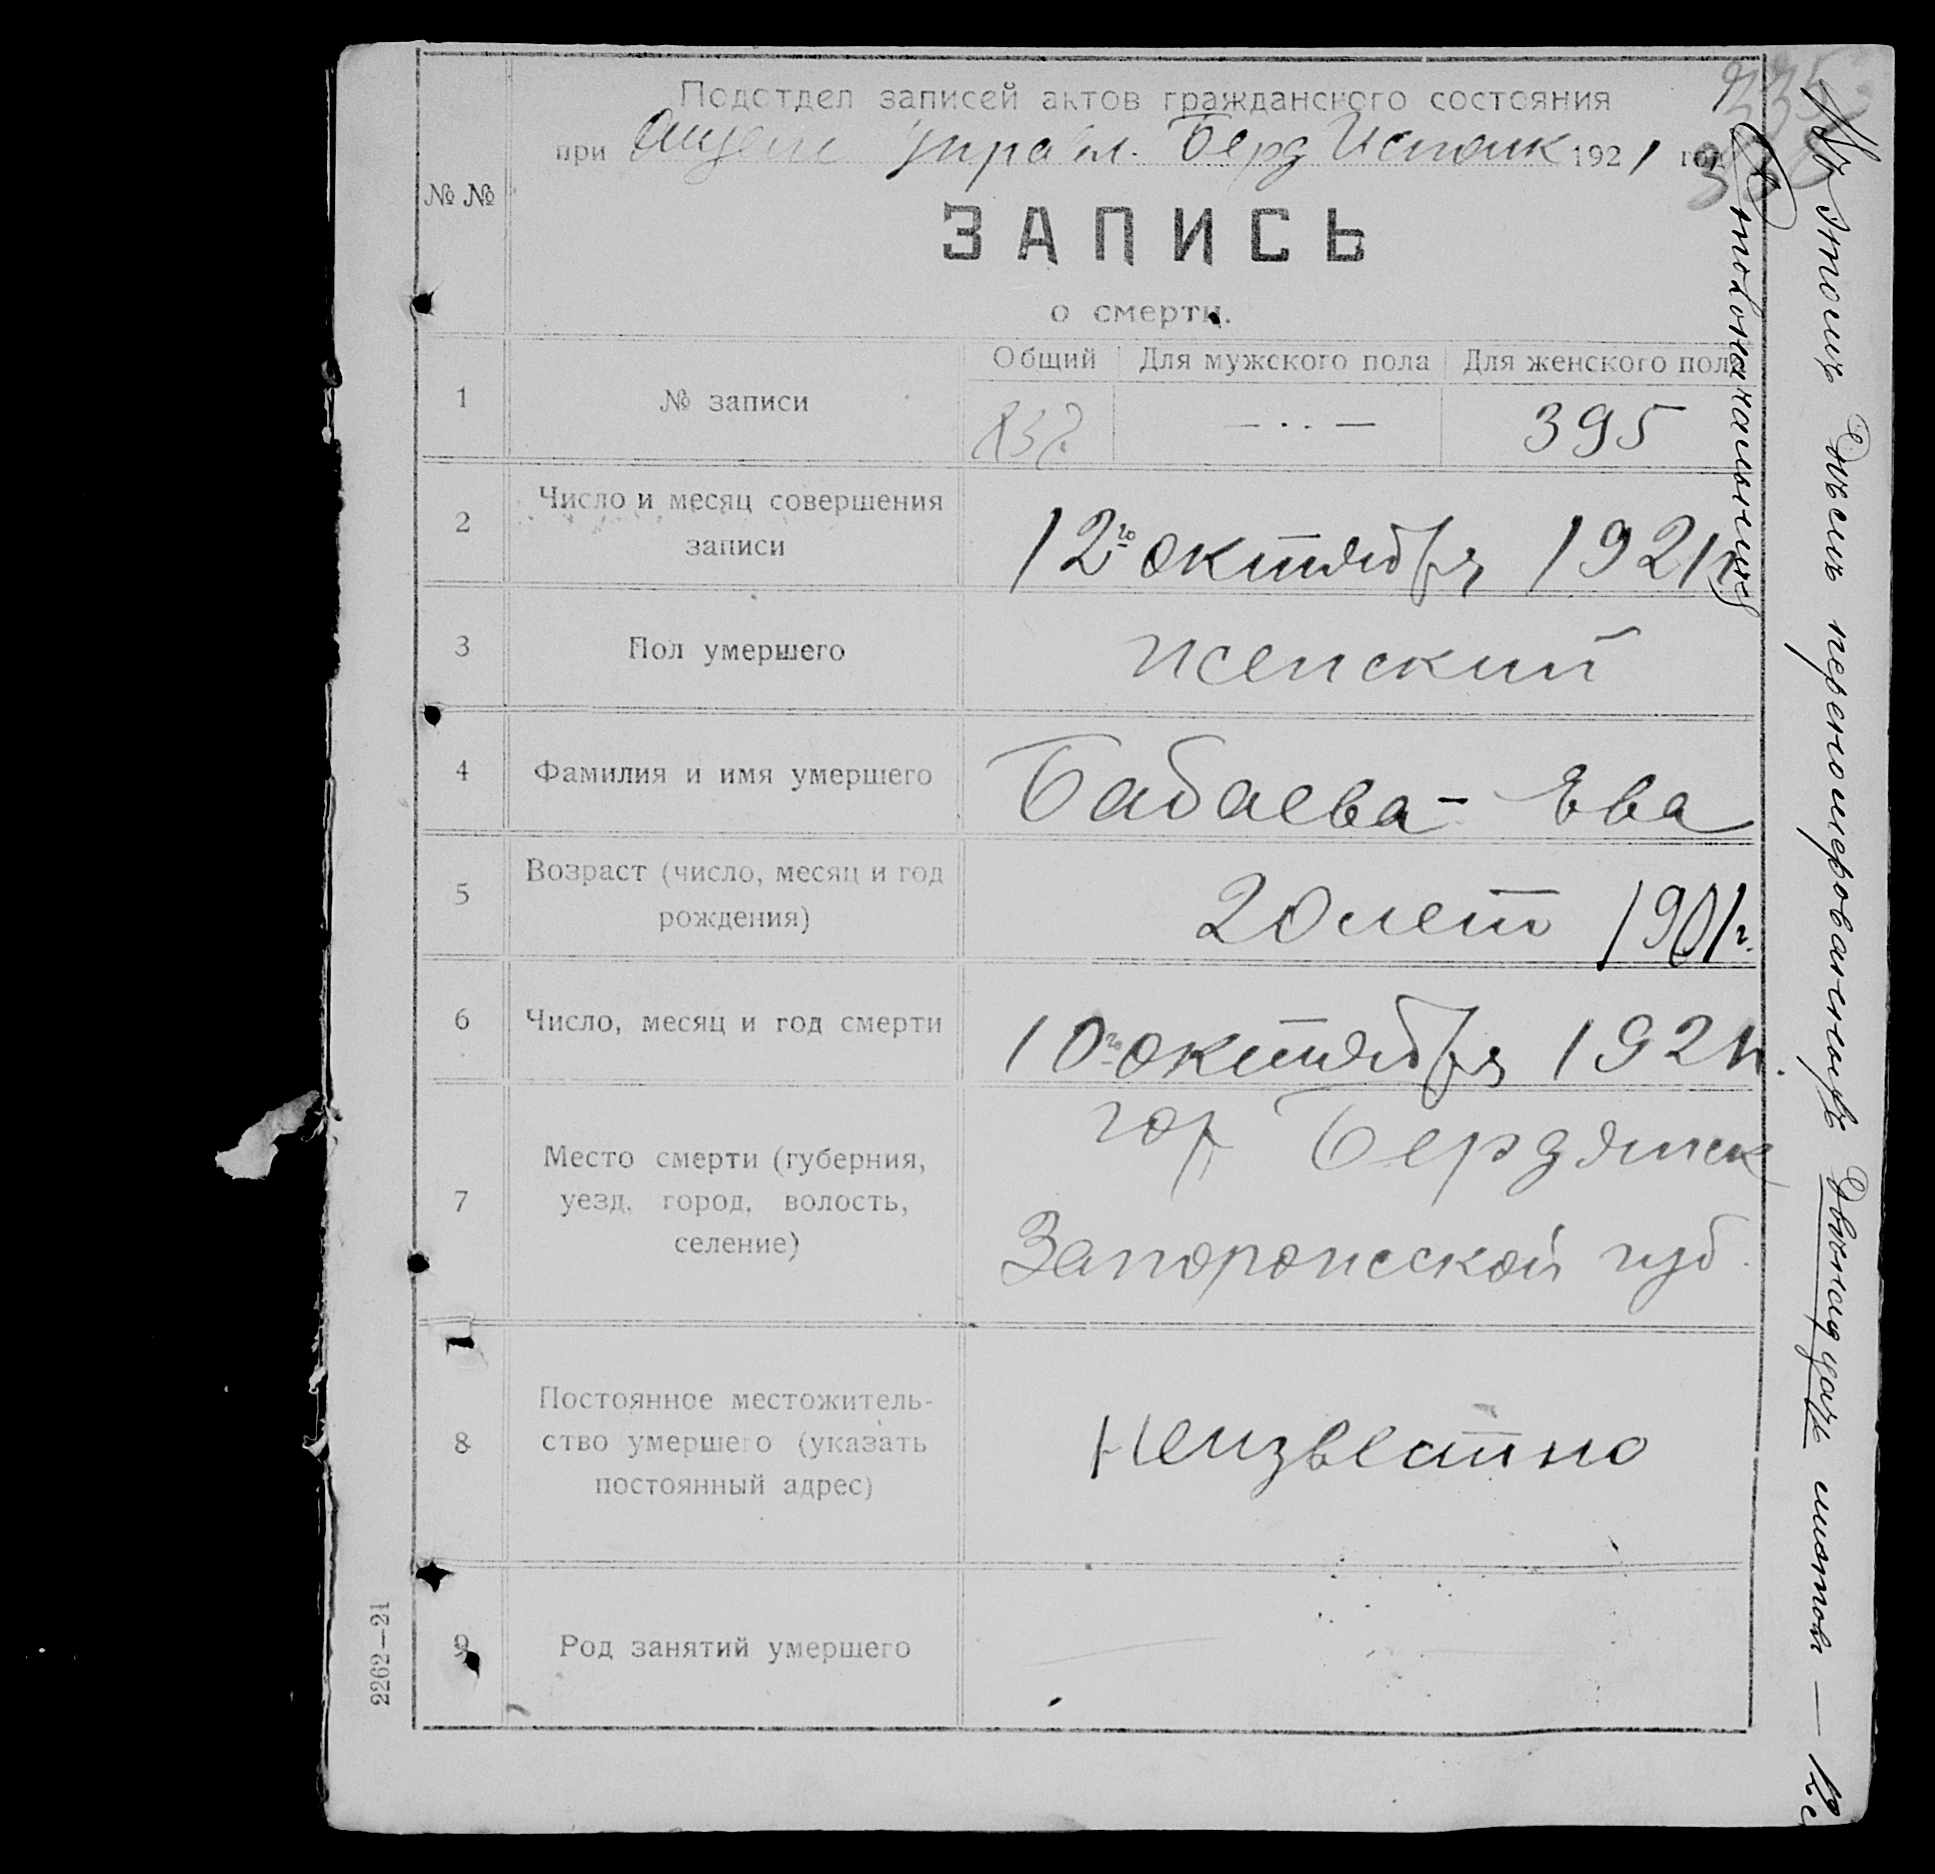 Подотдел записей актов гражданского состояния
при Отделе Управл. Берд Исполк 1921 год
№ №
ЗАПИСЬ
о смерти.
Общий Для мужского пола Для женского пола
1 № записи — · · — 395
2 Число и месяц совершения записи 12го октября 1921г
3 Пол умершего женский
4 Фамилия и имя умершего Бабаева - Ева
5 Возраст (число, месяц и год рождения) 20 лет 1901г.
6 Число, месяц и год смерти 10го октября 1921г.
7 Место смерти (губерния, уезд, город, волость, селение) гор Бердянск
Запорожской губ.
8 Постоянное местожительство умершего (указать постоянный адрес) Неизвестно
9 Род занятий умершего
2262—21
В этом деле перенумерованных Двенадцать листов — 12